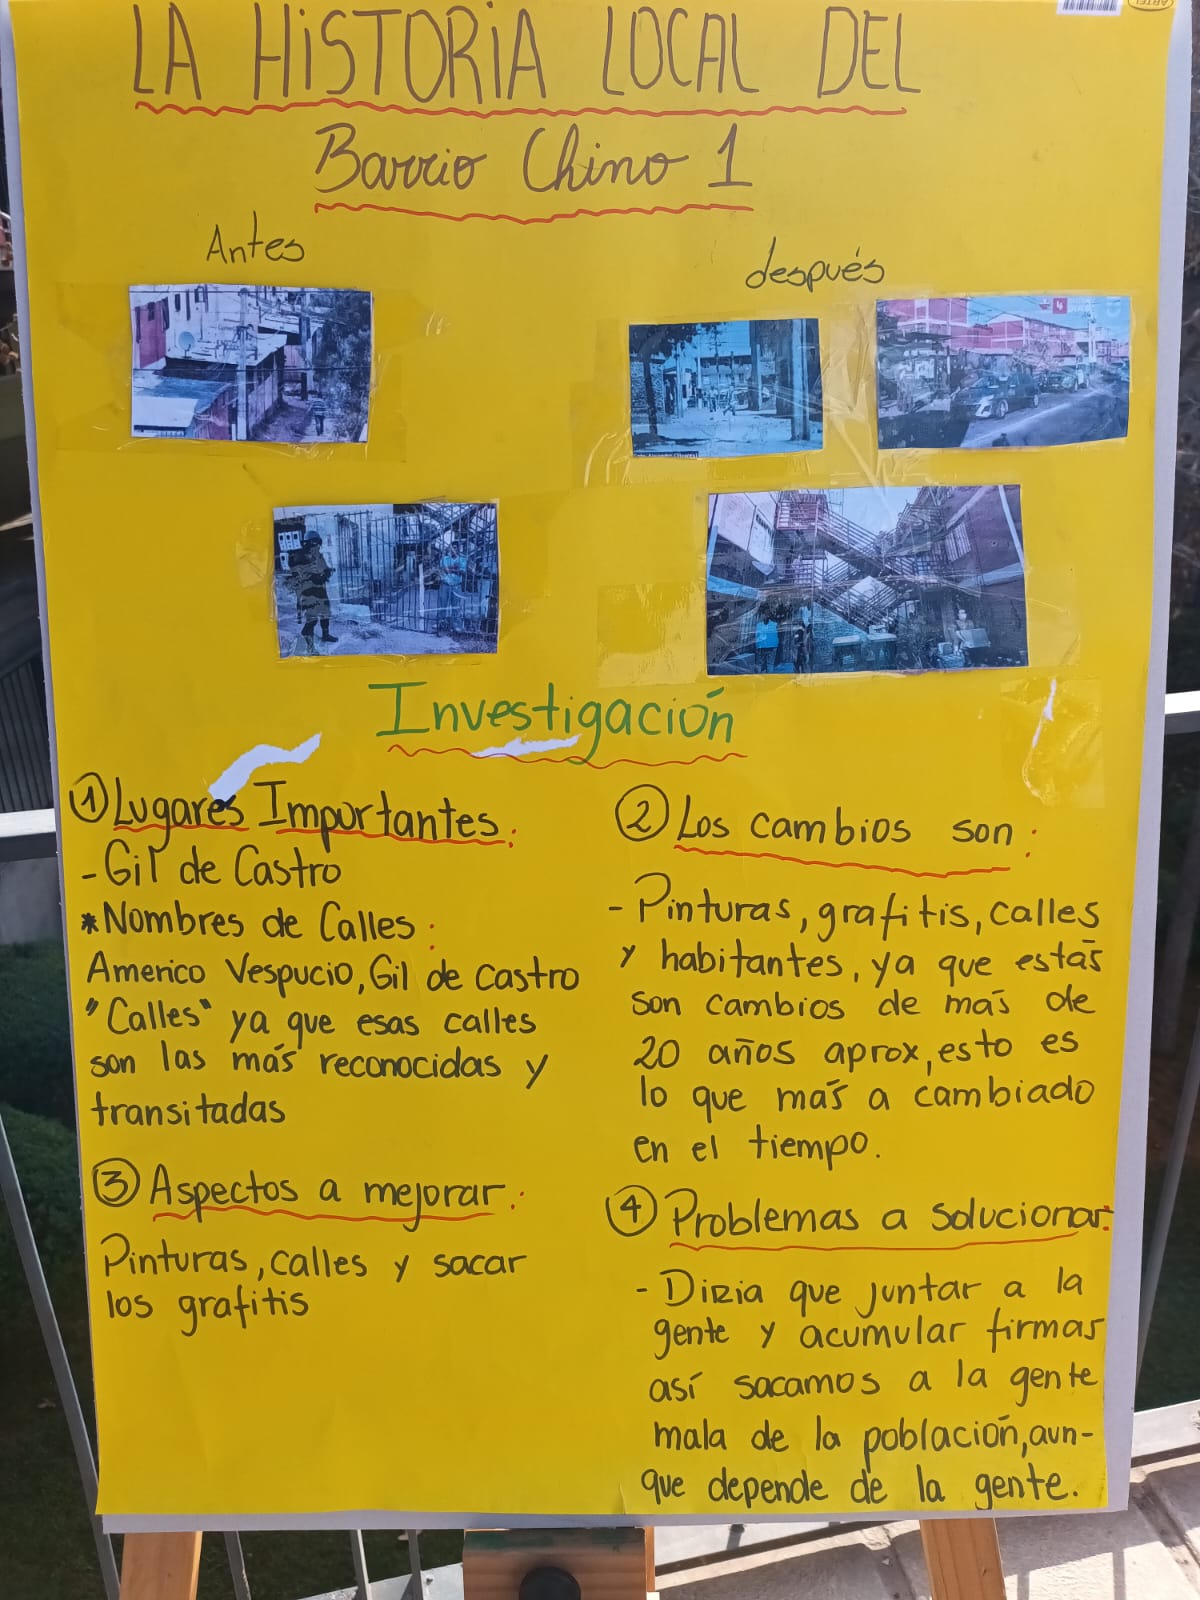 LA HiSTORiA LOCAL DEL
Barrio Chino 1
Antes
después
Investigación
① Lugares Importantes:
- Gil de Castro
*Nombres de Calles:
Americo Vespucio, Gil de Castro
"Calles" ya que esas calles
son las más reconocidas y
transitadas
② Los cambios son:
- Pinturas, grafitis, calles
y habitantes, ya que estás
son cambios de más de
20 años aprox, esto es
lo que más a cambiado
en el tiempo.
③ Aspectos a mejorar:
Pinturas, calles y sacar
los grafitis
④ Problemas a solucionar:
- Diria que juntar a la
gente y acumular firmas
así sacamos a la gente
mala de la población, aun-
que depende de la gente.